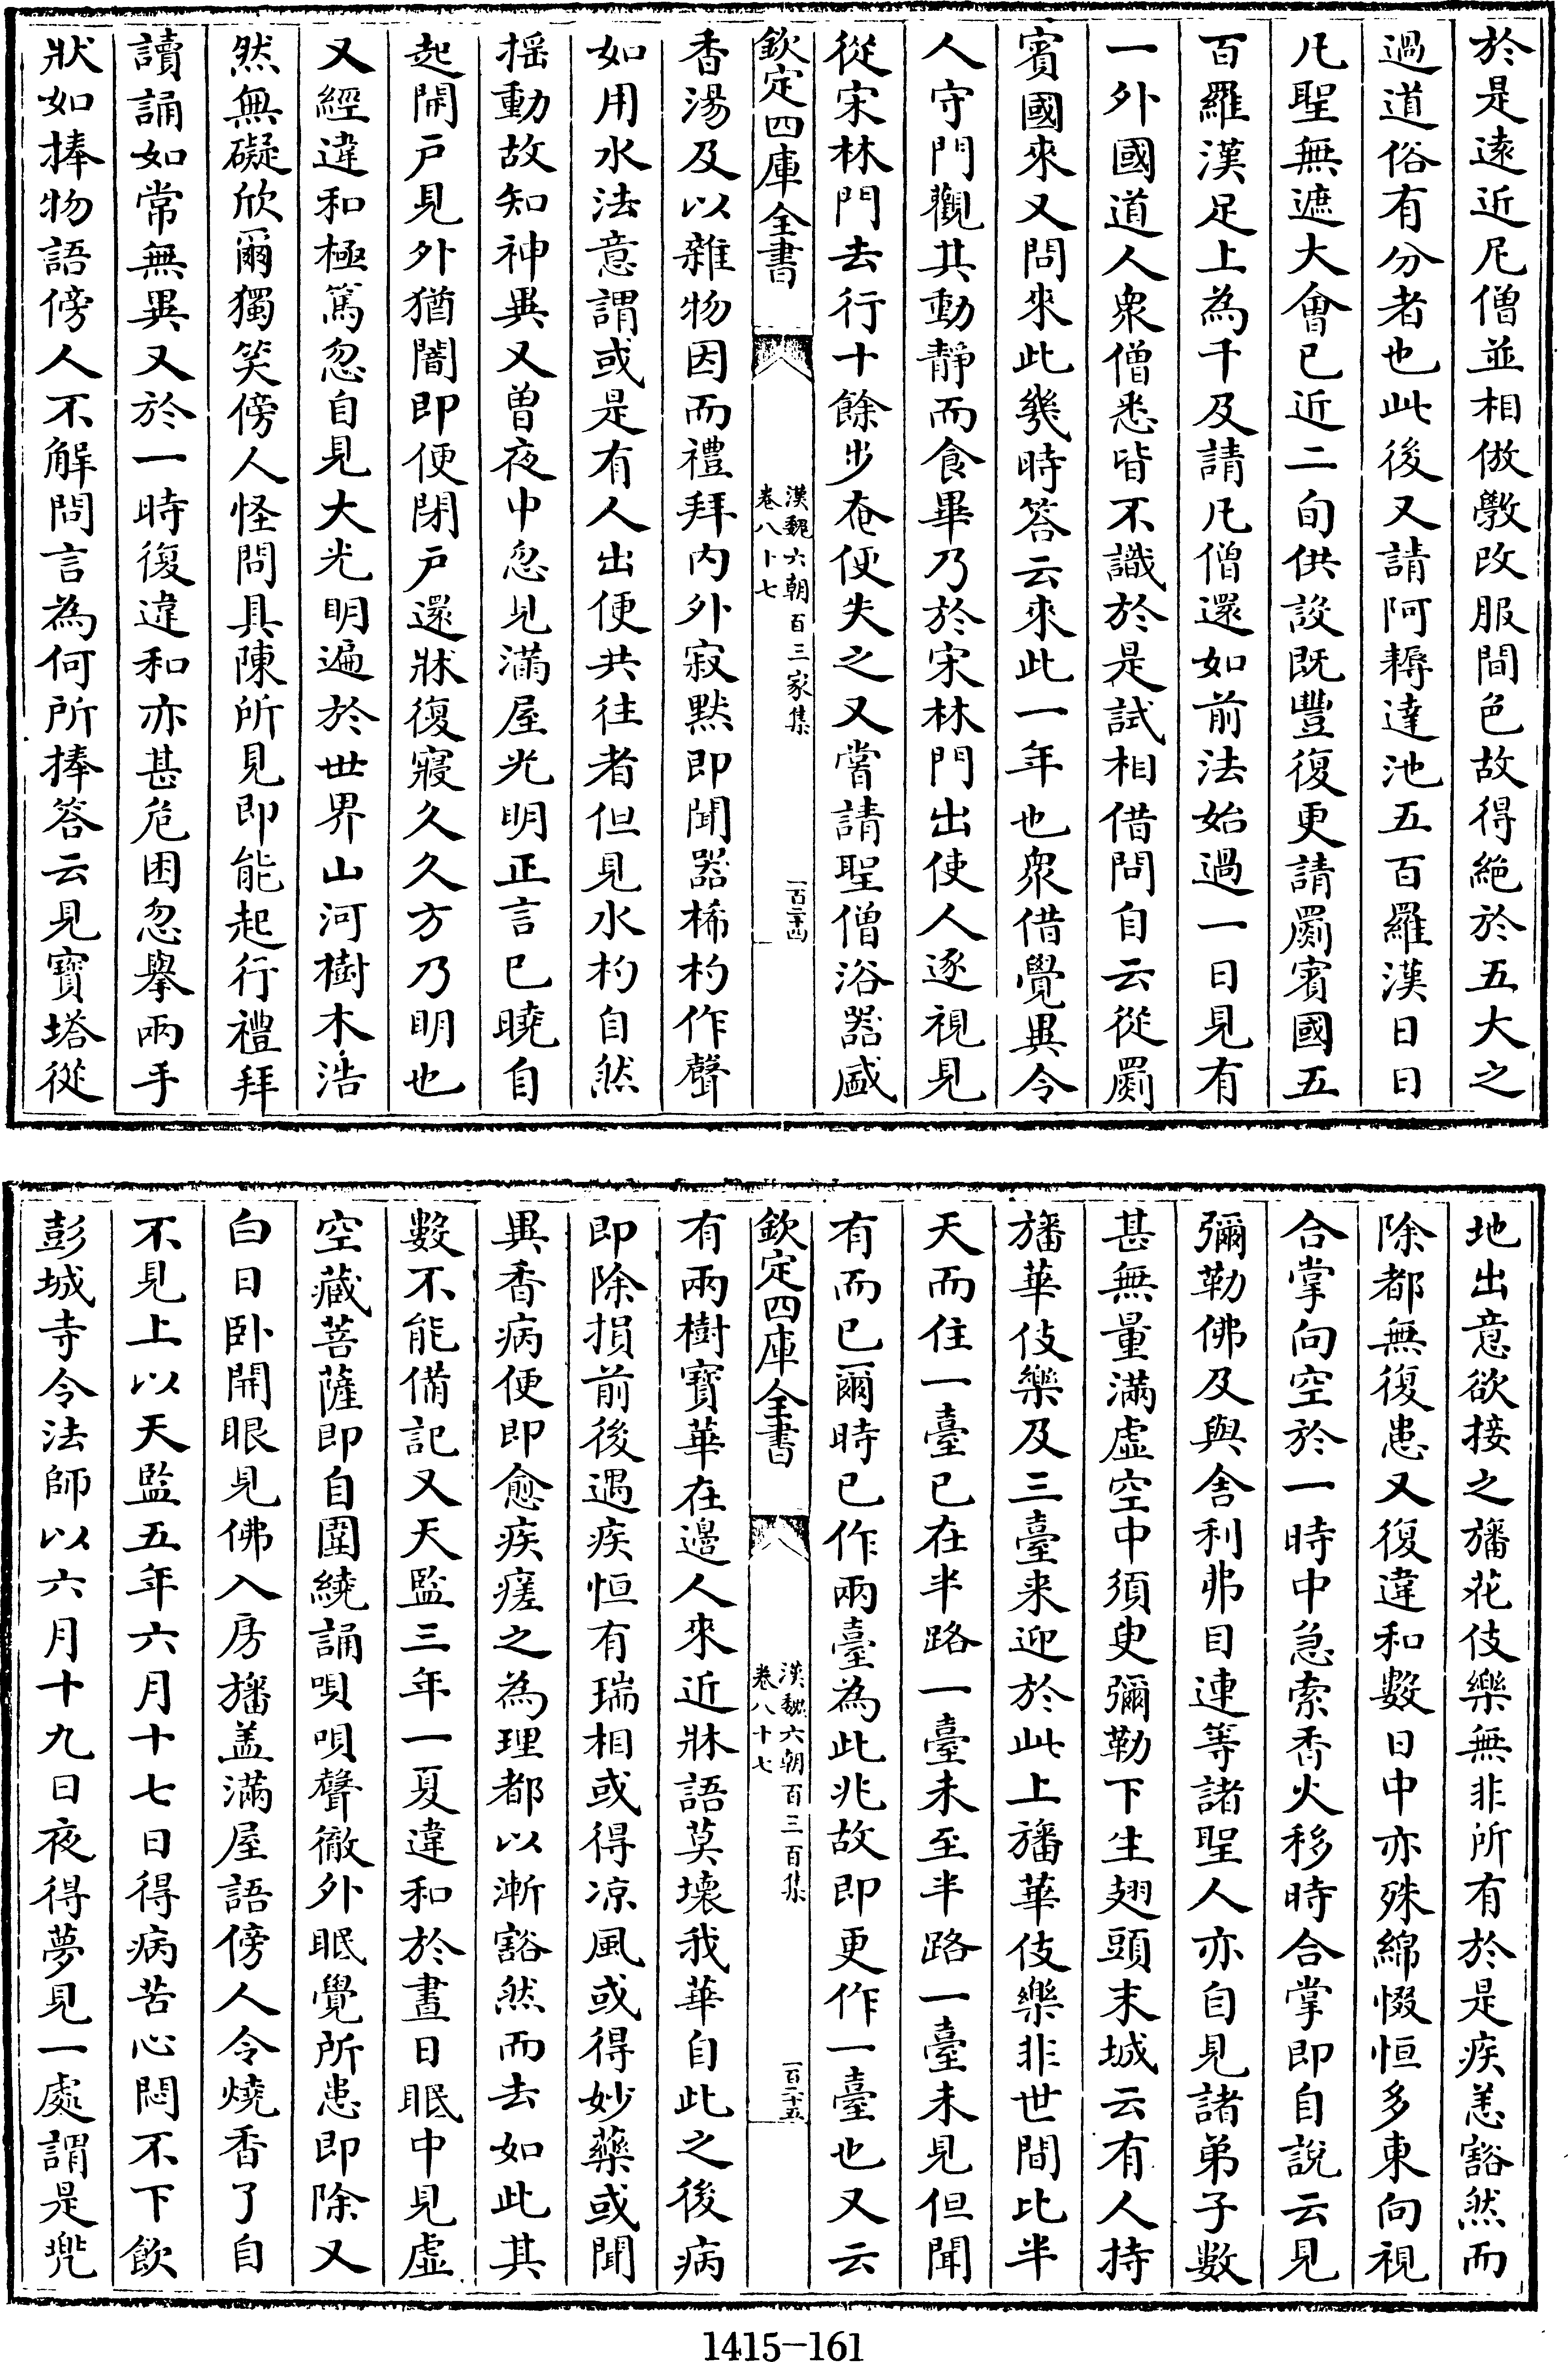 於是遠近尼僧並相倣斆改服間色故得絶於五大之
過道俗有分者也此後又請阿耨達池五百羅漢日日
凡聖無遮大會已近二旬供設既豐復更請罽賓國五
百羅漢足上為千及請凡僧還如前法始過一日見有
一外國道人衆僧悉皆不識於是試相借問自云從罽
賓國來又問來此幾時答云來此一年也衆借覺異令
人守門觀其動静而食畢乃於宋林門出使人逐視見
從宋林門去行十餘步奄便失之又嘗請聖僧浴器盛
欽定四庫全書
漢魏六朝百三家集
卷八十七
一百二十四
香湯及以雜物因而禮拜内外寂黙即聞器桸杓作聲
如用水法意謂或是有人出便共往者但見水杓自然
揺動故知神異又曽夜中忽見滿屋光明正言已曉自
起開戸見外猶闇即便閉戸還牀復寢久久方乃明也
又經違和極篤忽自見大光明遍於世界山河樹木浩
然無礙欣爾獨笑傍人怪問具陳所見即能起行禮拜
讀誦如常無異又於一時復違和亦甚危困忽舉兩手
狀如捧物語傍人不解問言為何所捧答云見寶塔從
地出意欲接之旛花伎樂無非所有於是疾恙豁然而
除都無復患又復違和數日中亦殊綿惙恒多東向視
合掌向空於一時中急索香火移時合掌即自說云見
彌勒佛及與舍利弗目連等諸聖人亦自見諸弟子數
甚無量滿虚空中須臾彌勒下生翅頭末城云有人持
旛華伎樂及三臺来迎於此上旛華伎樂非世間比半
天而住一臺已在半路一臺未至半路一臺未見但聞
有而已爾時已作兩臺為此兆故即更作一臺也又云
欽定四庫全書
漢魏六朝百三百集
卷八十七
一百二十五
有兩樹寶華在邉人來近牀語莫壞我華自此之後病
即除損前後遇疾恒有瑞相或得凉風或得妙藥或聞
異香病便即愈疾瘥之為理都以漸豁然而去如此其
數不能備記又天監三年一夏違和於晝日眠中見虚
空藏菩薩即自圍繞誦唄唄聲徹外眠覺所患即除又
白日卧開眼見佛入房旛盖滿屋語傍人令燒香了自
不見上以天監五年六月十七日得病苦心悶不下飲
彭城寺令法師以六月十九日夜得夢見一處謂是兠
1415-161